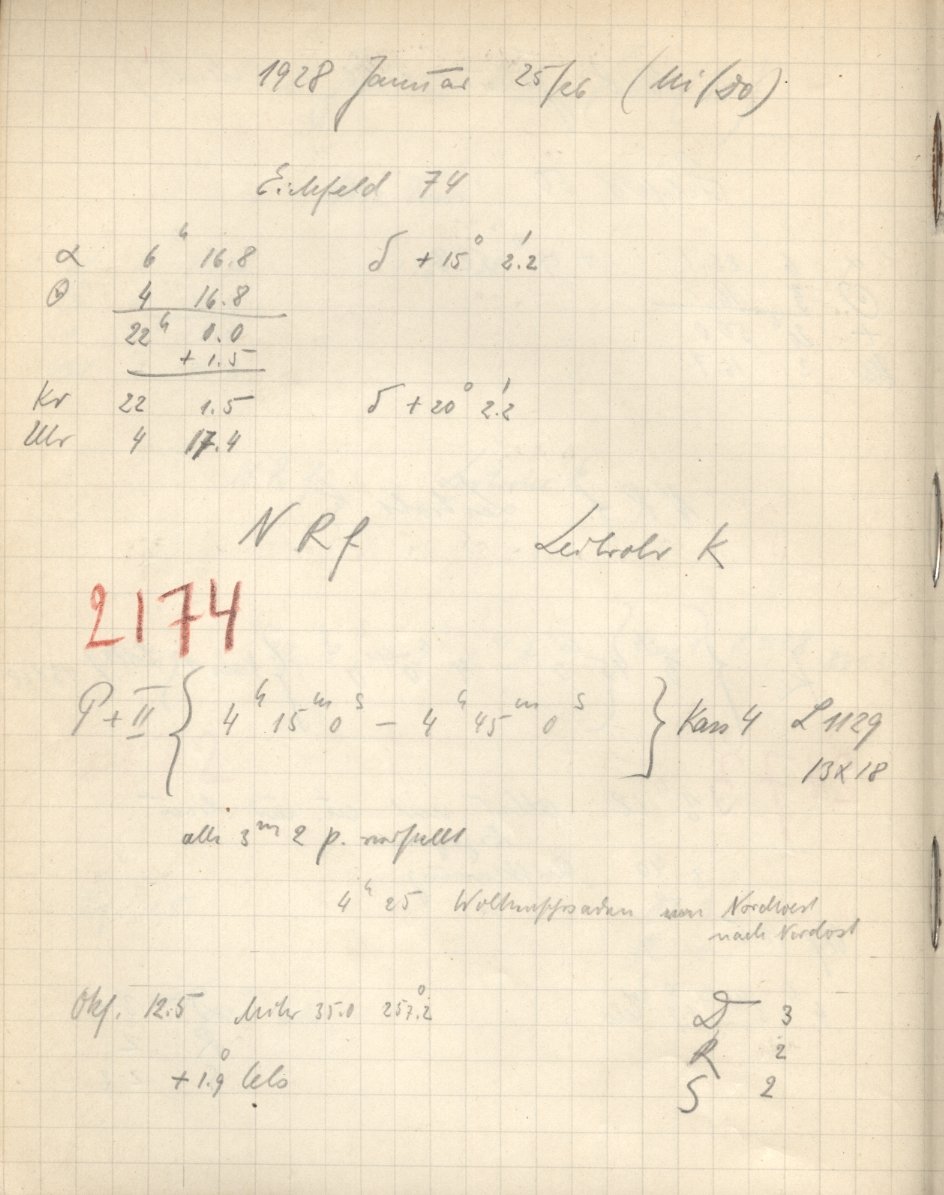 1928 Januar 25/26 (Mi/Do)
Eichfeld 74
α 6ʰ 16.8 δ +15° 2'.2
Θ 4 16.8
22ʰ 0.0
+ 1.5
Kr 22 1.5 δ +20° 2'.2
Uhr 4 17.4
N R f Leitrohr K
2174
P + II { 4ʰ 15ᵐ 0ˢ – 4ʰ 45ᵐ 0ˢ } Kass 4 L 1129
13x18
alle 3ᵐ 2 p. verstellt
4ʰ 25 Wolkenschwaden von Nordwest
nach Nordost
Okf. 12.5 Mikr 35.0 257°.2
+1°.9 Cels
D 3
R 2
S 2